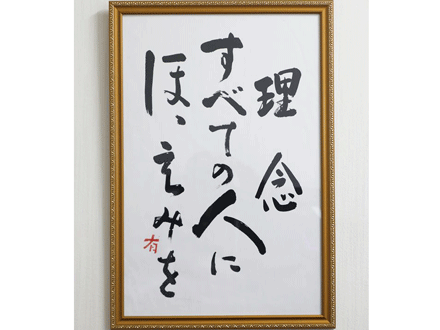 理念
すべての人に
ほゝえみを
有